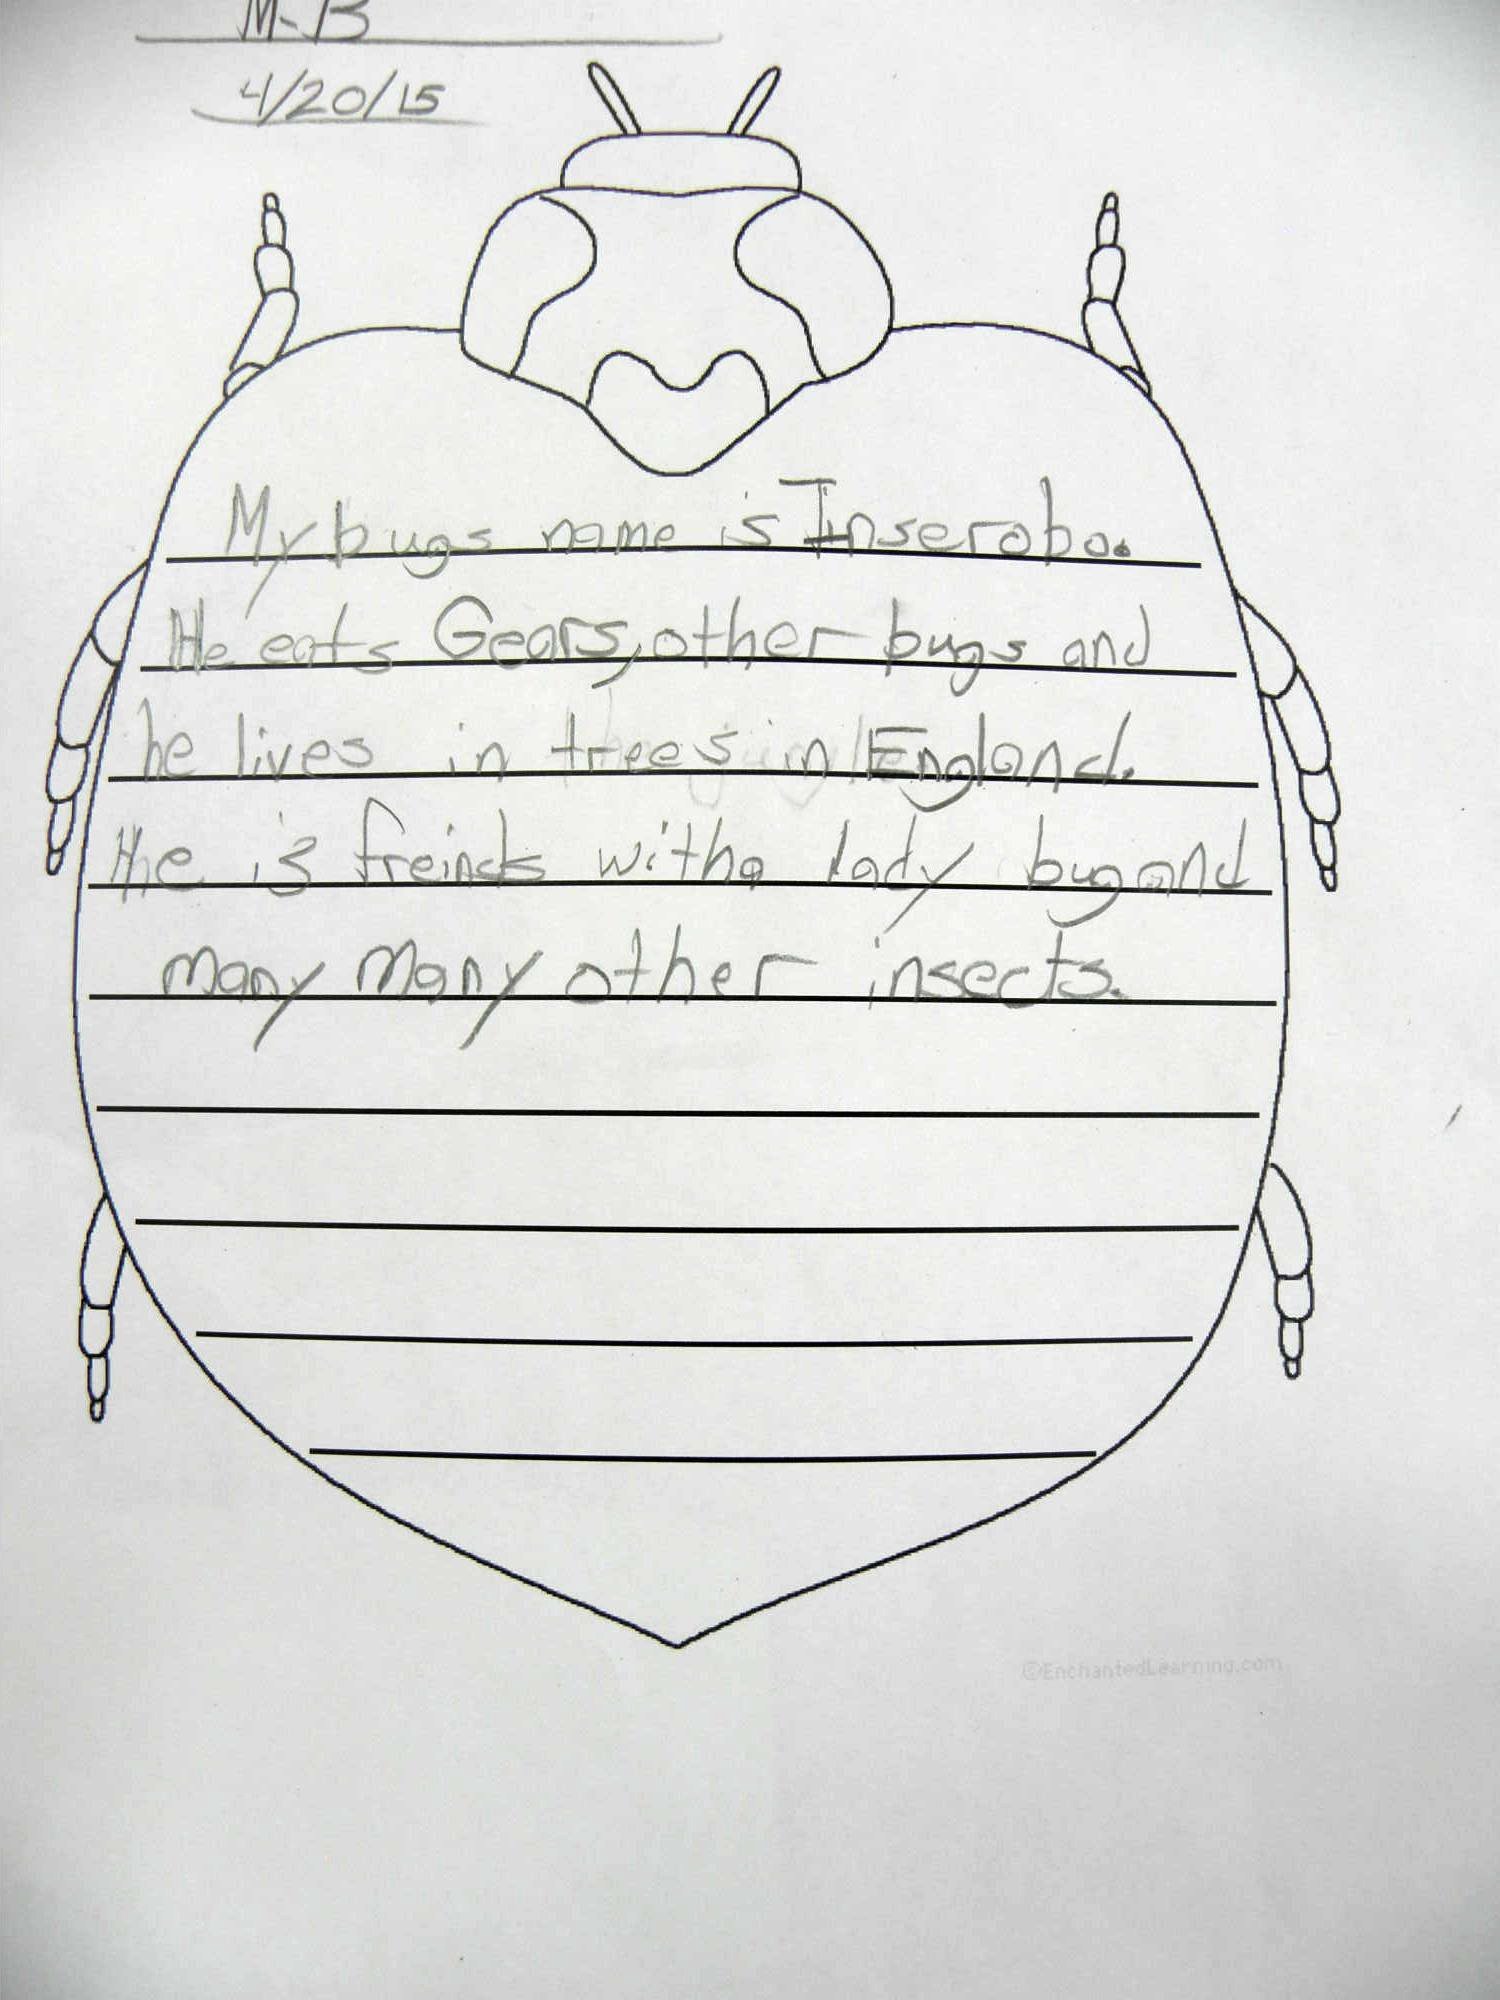 M-B
4/20/15
My bugs name is Inserobo.
He eats Gears, other bugs and
he lives in trees in England.
He is freinds with a lady bug and
many many other insects.
©EnchantedLearning.com